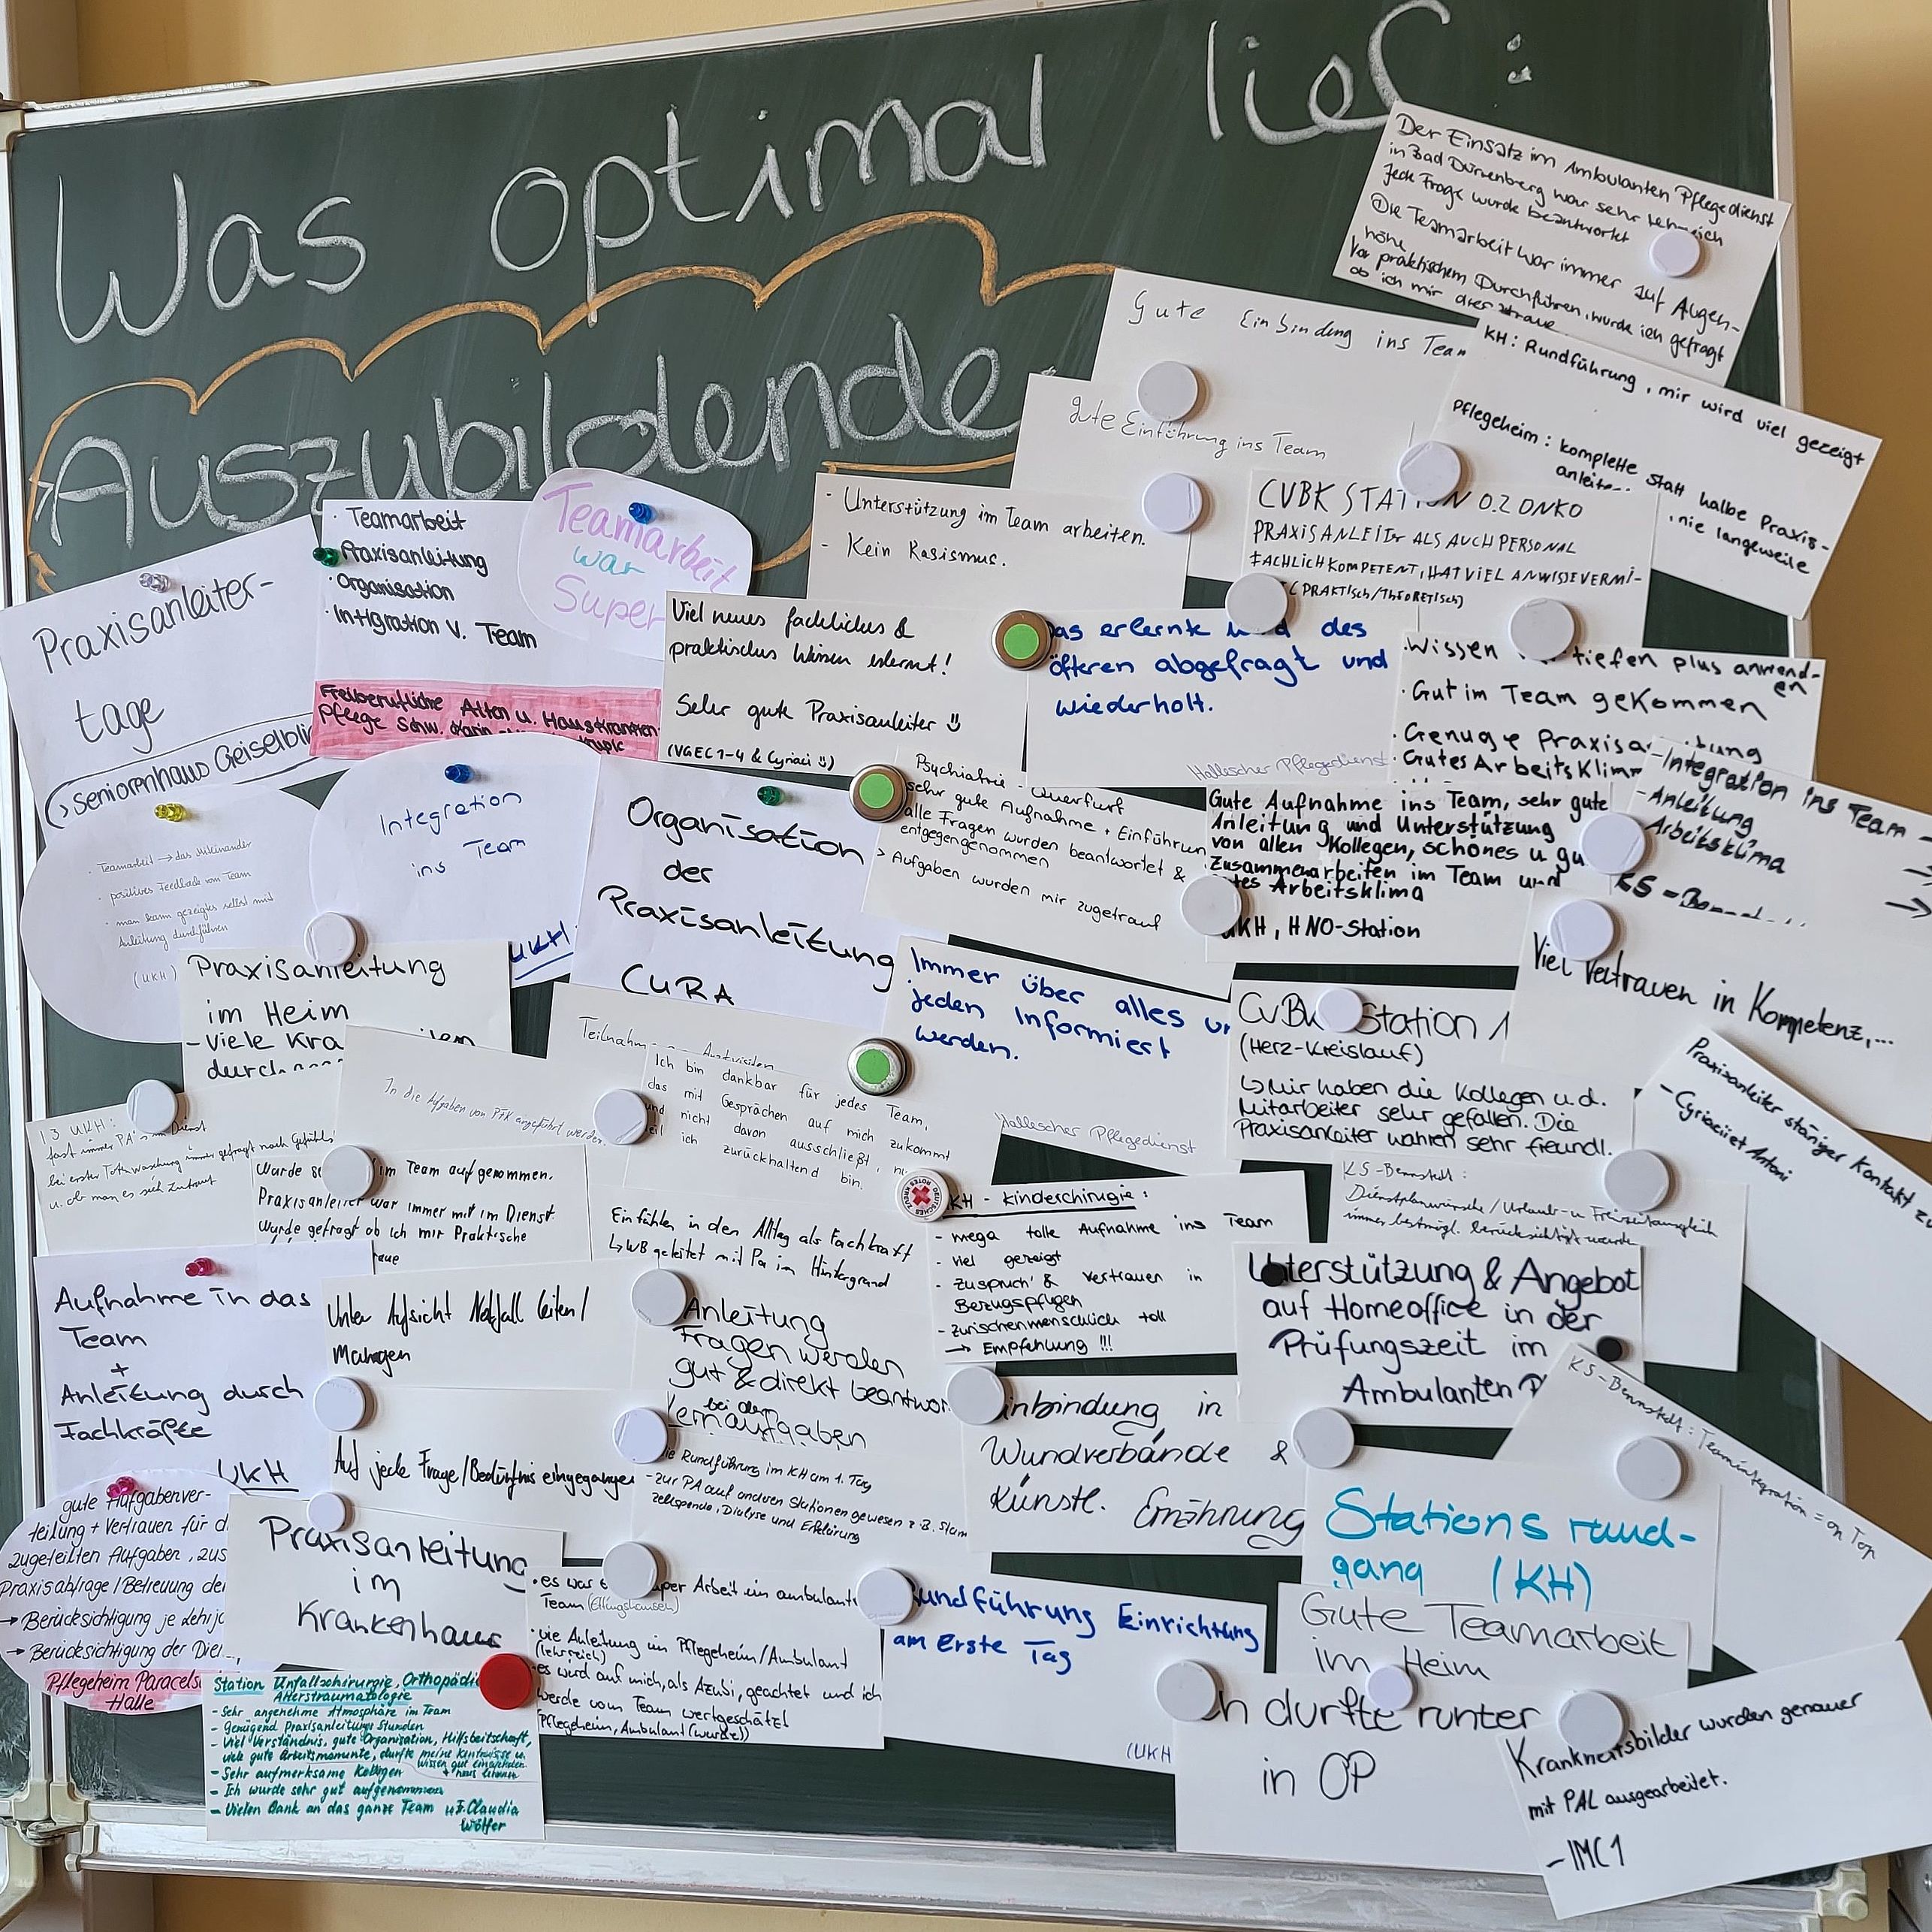 Was optimal lief:
Auszubildende
Der Einsatz im Ambulanten Pflegedienst
in Bad Dürrenberg war sehr
Jede Frage wurde beantwortet
Die Teamarbeit war immer auf Augen-
höhe
Vor praktischem Durchführen, wurde ich gefragt
ob ich mir dies
Gute Einbindung ins Team
KH: Rundführung, mir wird viel gezeigt
Pflegeheim: komplette statt halbe Praxis-
anleite
, nie langeweile
gute Einführung ins Team
- Unterstützung im Team arbeiten.
- Kein Rasismus.
CVBK STATION 0.2 ONKO
PRAXISANLEITER ALS AUCH PERSONAL
FACHLICH KOMPETENT, HAT VIEL AN WISSEVERMI-
(PRAKTISCH/THEORETISCH)
Praxisanleiter-
tage
Seniorenhaus
· Teamarbeit
· Praxisanleitung
· Organisation
· Intigration v. Team
Freiberufliche Alten u. Hauskranken
pflege Schw.
Teamarbeit
war
Super
Viel neues fachliches &
praktisches Wissen erlernt!
Sehr gute Praxisanleiter
(VGEC1-4 & Cyriaci)
as erlernte des
öfteren abgefragt und
wiederholt.
Hallescher Pflegedienst
· Wissen tiefen plus anwend-
en
· Gut im Team gekommen
· Genuge Praxisa
· Gutes Arbeitsklim
- Integration ins Team
- Anleitung
- Arbeitsklima
KS
Teamarbeit → das Miteinander
· positives Feedback vom Team
· man kann gezeigtes selbst mit
Anleitung durchführen
(UKH)
Integration
ins Team
UKH
Organisation
der
Praxisanleitung
CURA
Psychiatrie - Querfurt
sehr gute Aufnahme + Einführun
alle Fragen wurden beantwortet &
entgegengenommen
> Aufgaben wurden mir zugetraut
Gute Aufnahme ins Team, sehr gute
Anleitung und Unterstützung
von allen Kollegen, schönes u gu
Zusammenarbeiten im Team und
tes Arbeitsklima
UKH, HNO-Station
Viel Vertrauen in Kompetenz,...
Praxisanleitung
im Heim
- viele
Immer über alles
jeden Informiert
werden.
Hallescher Pflegedienst
Station 1
(Herz-Kreislauf)
↳ Mir haben die Kollegen u.d.
Mitarbeiter sehr gefallen. Die
Praxisanleiter wahren sehr freundl.
Praxisanleiter stäniger Kontakt zu
- Cyriaci et Antoni
UKH:
fast immer PA's im Dienst
bei erster Totenwaschung immer gefragt nach Gefühls
u. ob man es sich zutraut
In die Aufgaben von PFK eingeführt werden
Ich bin dankbar für jedes Team,
das mit Gesprächen auf mich zukommt
und nicht davon ausschließt,
eil ich zurückhaltend bin.
Wurde im Team aufgenommen.
Praxisanleiter war immer mit im Dienst
Wurde gefragt ob ich mir Praktische
Einfühlen in den Alltag als Fachkraft
↳ WB geleitet mit Pa im Hintergrund
KH - Kinderchirugie:
- mega tolle Aufnahme ins Team
- viel gezeigt
- Zuspruch & Vertrauen in
Bezugspflegen
- zwischenmenschlich toll
→ Empfehlung !!!
KS-Bennstedt:
Dienstplanwünsche/Urlaub- u Freizeitausgleich
immer bestmögl. berücksichtigt wurde
Unterstützung & Angebot
auf Homeoffice in der
Prüfungszeit im
Ambulanten
Aufnahme in das
Team
+
Anleitung durch
Fachkräfte
UKH
Unter Aufsicht Notfall leiten/
Managen
Anleitung
Fragen werden
gut & direkt beantwor
bei den
Lernaufgaben
Auf jede Frage/Bedürfnis eingegangen
Rundführung im KH am 1. Tag
- zur PA auf anderen Stationen gewesen z.B. Stam
zellspende, Dialyse und Erklärung
inbindung in
Wundverbände &
künstl. Ernährung
KS-Bennstedt: Teamintegration = on Top
Stationsrund-
gang (KH)
gute Aufgabenver-
teilung + Vertrauen für d
zugeteilten Aufgaben,
Praxisabfrage/Betreuung der
→ Berücksichtigung je Lehrj
→ Berücksichtigung der
Pflegeheim
Halle
Praxisanleitung
im
Krankenhaus
Station Unfallschirurgie, Orthopädi
Alterstraumatologie
- Sehr angenehme Atmosphäre im Team
- Genügend Praxisanleitungs Stunden
- Viel Verständnis, gute Organisation, Hilfsbeitschaft,
viele gute Arbeitsmomente, durfte meine Kentnisse u.
Wissen gut einarbeiten
+ neus lehrnen
- Sehr aufmerksame Kollegen
- Ich wurde sehr gut aufgenommen
- Vielen Dank an das ganze Team u Fr. Claudia
Wölfer
· es war per Arbeit im ambulant
Team
· vie Anleitung im Pflegeheim/Ambulant
(lehrreich)
· es wird auf mich, als Azubi, geachtet und ich
werde vom Team wertgeschätzt
(Pflegeheim, Ambulant (wurde))
undführung Einrichtung
am Erste Tag
(UKH
Gute Teamarbeit
im Heim
h durfte runter
in OP
Krankheitsbilder wurden genauer
mit PAL ausgearbeitet.
- IMC1